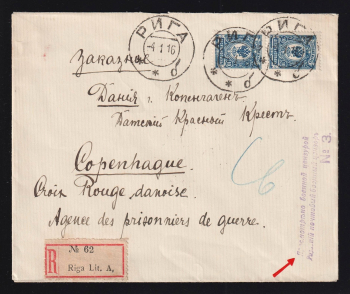 РИГА
-4.1.16
Заказное
РИГА
РИГА
Данія г. Копенгагенъ
Датскій Красный Крестъ
Copenhague.
Croix Rouge danoise.
Agence des prisonniers de guerre.
R
№ 62
Riga Lit. A,
военной цензурой
№ 3.